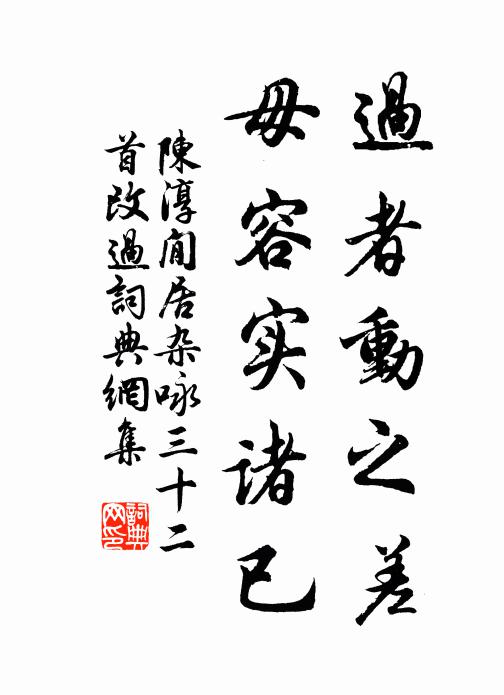 過者動之差
毋容实諸已
陳淳闲居杂咏三十二
首改過詞典網集
詞典
网印